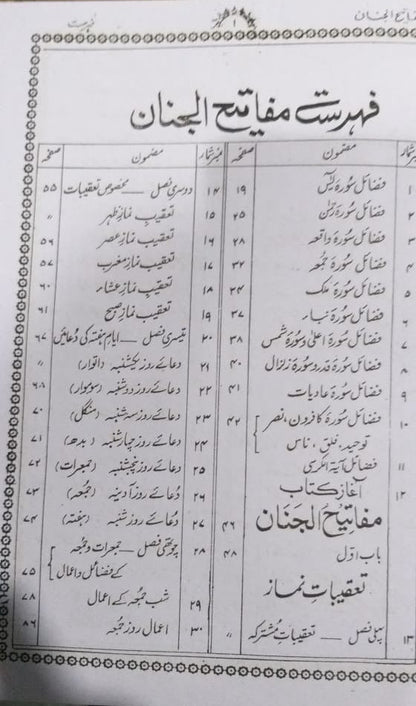 مفاتیح الجنان
۱
فہرست
فہرست مفاتیح الجنان
نمبر شمار مضمون صفحہ
۱ فضائل سورۂ یٰس ۱۹
۲ فضائل سورۂ رحمٰن ۲۵
۳ فضائل سورۂ واقعہ ۲۸
۴ فضائل سورۂ جمعہ ۳۲
۵ فضائل سورۂ ملک ۳۴
۶ فضائل سورۂ نباء ۳۷
۷ فضائل سورۂ اعلیٰ و سورۂ شمس ۳۸
۸ فضائل سورۂ قدر و سورۂ زلزال ۴۰
۹ فضائل سورۂ عادیات ۴۱
۱۰ فضائل سورۂ کافرون، نصر ۴۲
توحید، فلق، ناس
۱۱ فضائل آیۃ الکرسی
۱۲ آغاز کتاب
مفاتیح الجنان ۴۶
باب اوّل ۴۸
تعقیبات نماز
۱۳ پہلی فصل — تعقیباتِ مشترکہ "
نمبر شمار مضمون صفحہ
۱۴ دوسری فصل — مخصوص تعقیبات ۵۵
۱۵ تعقیب نمازِ ظہر "
۱۶ تعقیب نمازِ عصر ۵۶
۱۷ تعقیب نمازِ مغرب ۵۷
۱۸ تعقیب نمازِ عشاء ۶۰
۱۹ تعقیب نمازِ صبح ۶۱
۲۰ تیسری فصل — ایامِ ہفتہ کی دعائیں ۶۷
۲۱ دعائے روز یکشنبہ (اتوار) "
۲۲ دعائے روز دوشنبہ (سوموار) ۶۸
۲۳ دعائے روز سہ شنبہ (منگل) ۷۰
۲۴ دعائے روز چہارشنبہ (بدھ) ۷۱
۲۵ دعائے روز پنجشنبہ (جمعرات) ۷۲
۲۶ دعائے روز آدینہ (جمعہ) ۷۳
۲۷ دعائے روز شنبہ (ہفتہ) ۷۴
۲۸ چوتھی فصل — جمعرات و جمعہ
کے فضائل و اعمال ۷۵
۲۹ شب جمعہ کے اعمال ۷۸
۳۰ اعمال روز جمعہ ۸۶